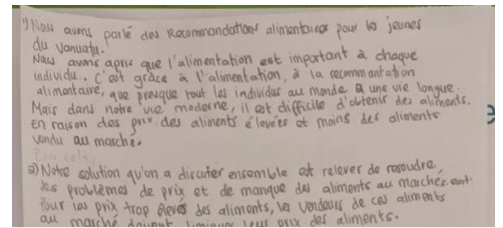 1) Nous avons parlé des Recommandations alimentaires pour les jeunes
du vanuatu.
Nous avons apris que l'alimentation est important à chaque
individu. C'est grâce à l'alimentation, à la recommantation
alimantaire, que presque tout les individus au monde a une vie longue.
Mais dans notre vie moderne, il est difficile d'obtenir des aliments.
En raison des prix des aliments élevées et moins des aliments
vendu au marché.
2) Notre solution qu'on a discuter ensemble est relever de resoudre,
les problèmes de prix et de manque des aliments au marchés. sont:
Pour les prix trop élevés des aliments, les vendeurs de ces aliments
au marché doivent limiquer leur prix des aliments.